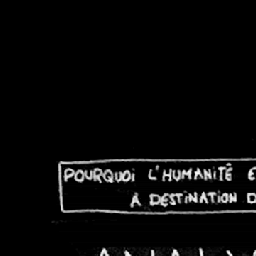 POURQUOI L'HUMANITÉ E
À DESTINATION D